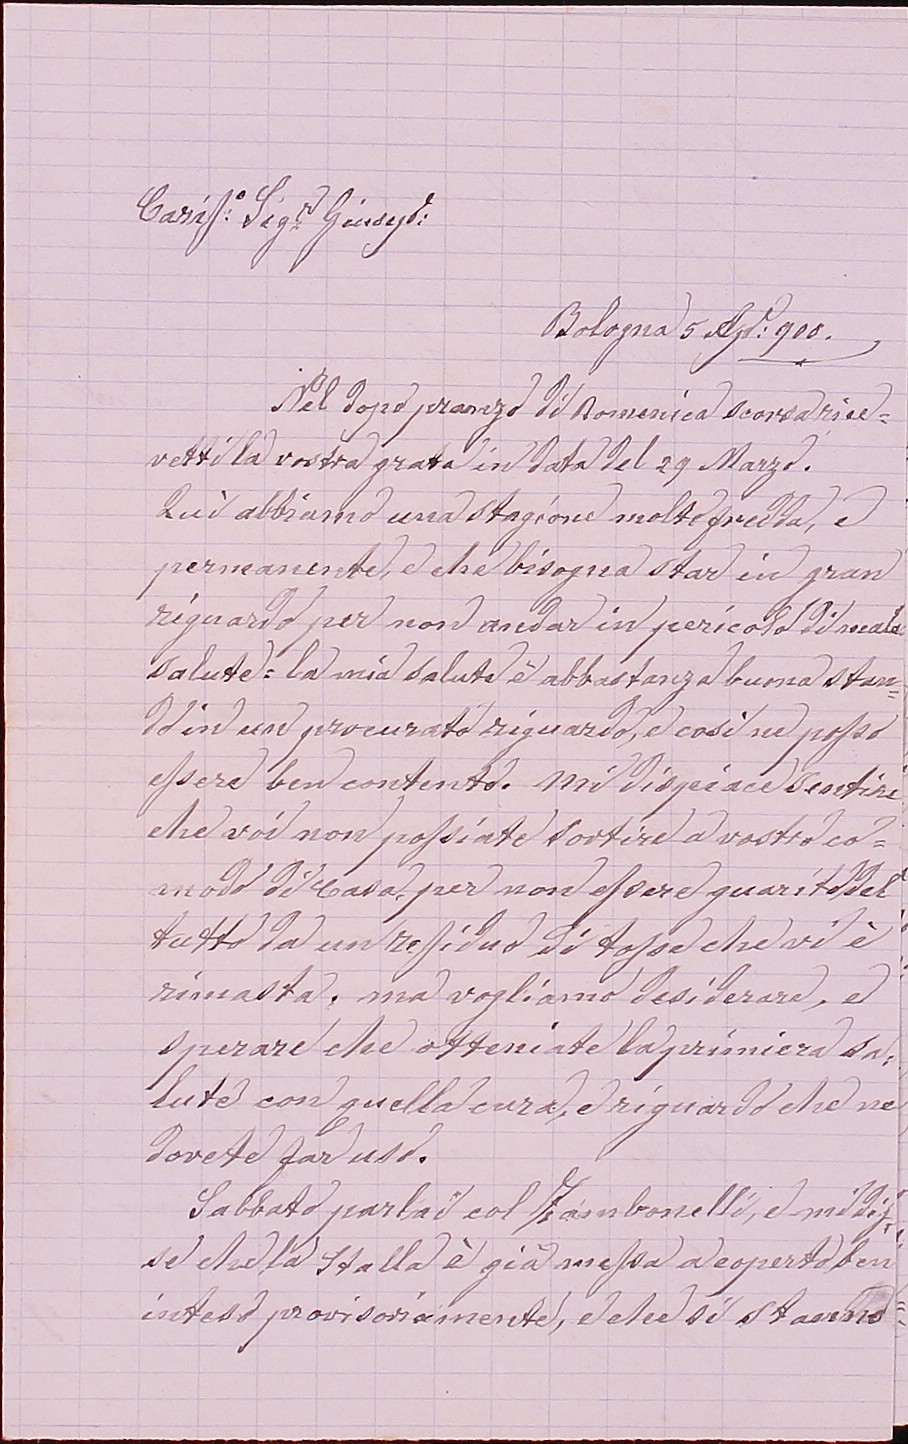 Cariss:º Sig.r Giusep.e:
Bologna 5 Ap.e: 900.
Nel dopo pranzo di Domenica scorsa rice=
vetti la vostra grata in data del 29 Marzo.
Qui abbiamo una stagione molto fredda, e
permanente, e che bisogna star in gran
riguardo per non andar in pericolo di mala
salute: la mia salute è abbastanza buona stan=
do in un procurato riguardo, e così ne posso
essere ben contento. Mi dispiace sentire
che voi non possiate sortire a vostro co=
modo di Casa, per non essere guarito del
tutto da un residuo di tosse che vi è
rimasta. ma vogliamo desiderare, e
sperare che otteniate la primiera sa=
lute con quella cura, e riguardo che ne
dovete far uso.
Sabbato parlai col Zambonelli, e mi dis=
se che la Stalla è già messa a coperto ben
inteso provisoriamente, e che si stanno